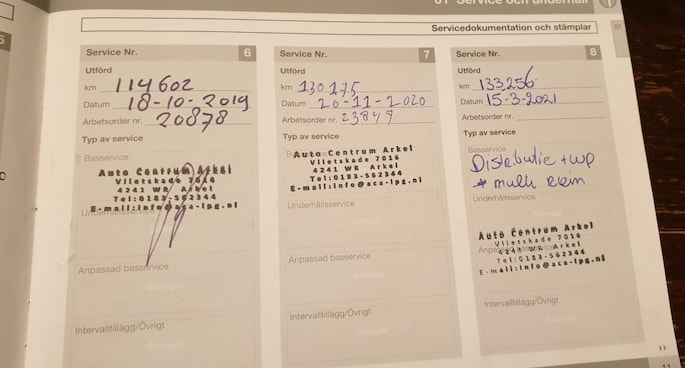 01 Service och underhåll
Servicedokumentation och stämplar
01
Service Nr. 6
Utförd
km 114602
Datum 18-10-2019
Arbetsorder nr. 20878
Typ av service
Basservice
Auto Centrum Arkel
Vlietskade 7016
4241 WR Arkel
Tel:0183-562344
E-mail:info@aca-lpg.nl
Underhållsservice
Stämpel
Anpassad basservice
Stämpel
Intervalltillägg/Övrigt
Stämpel
Service Nr. 7
Utförd
km 130175
Datum 20-11-2020
Arbetsorder nr. 23847
Typ av service
Auto Centrum Arkel
Vlietskade 7016
4241 WR Arkel
Tel:0183-562344
E-mail:info@aca-lpg.nl
Underhållsservice
Stämpel
Anpassad basservice
Stämpel
Intervalltillägg/Övrigt
Stämpel
Service Nr. 8
Utförd
km 133256
Datum 15-3-2021
Arbetsorder nr.
Typ av service
Basservice
Distributie + wp
+ multi riem
Underhållsservice
Auto Centrum Arkel
Vlietskade 7016
4241 WR Arkel
Tel:0183-562344
E-mail:info@aca-lpg.nl
Intervalltillägg/Övrigt
Stämpel
11